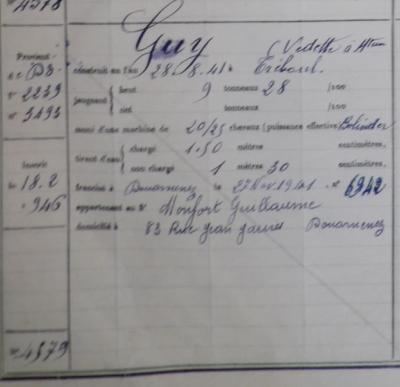 N° 4578
Guy (Vedette à
Provient
de D3.
n° 2239
n° 3493
construit en l'an 28.8.41 à Tréboul.
jaugeant { brut 9 tonneaux 28 /100
net tonneaux /100
muni d'une machine de 20/25 chevaux (puissance effective) Bolinder
tirant d'eau { chargé 1.50 mètres centimètres.
non chargé 1 mètres 30 centimètres.
Inscrit
le 18.2
946
francisé à Douarnenez le 27 Nov. 1941 n° 6942
appartenant au Sr Monfort Guillaume
domicilié à 83 Rue Jean Jaurès Douarnenez
N° 4579